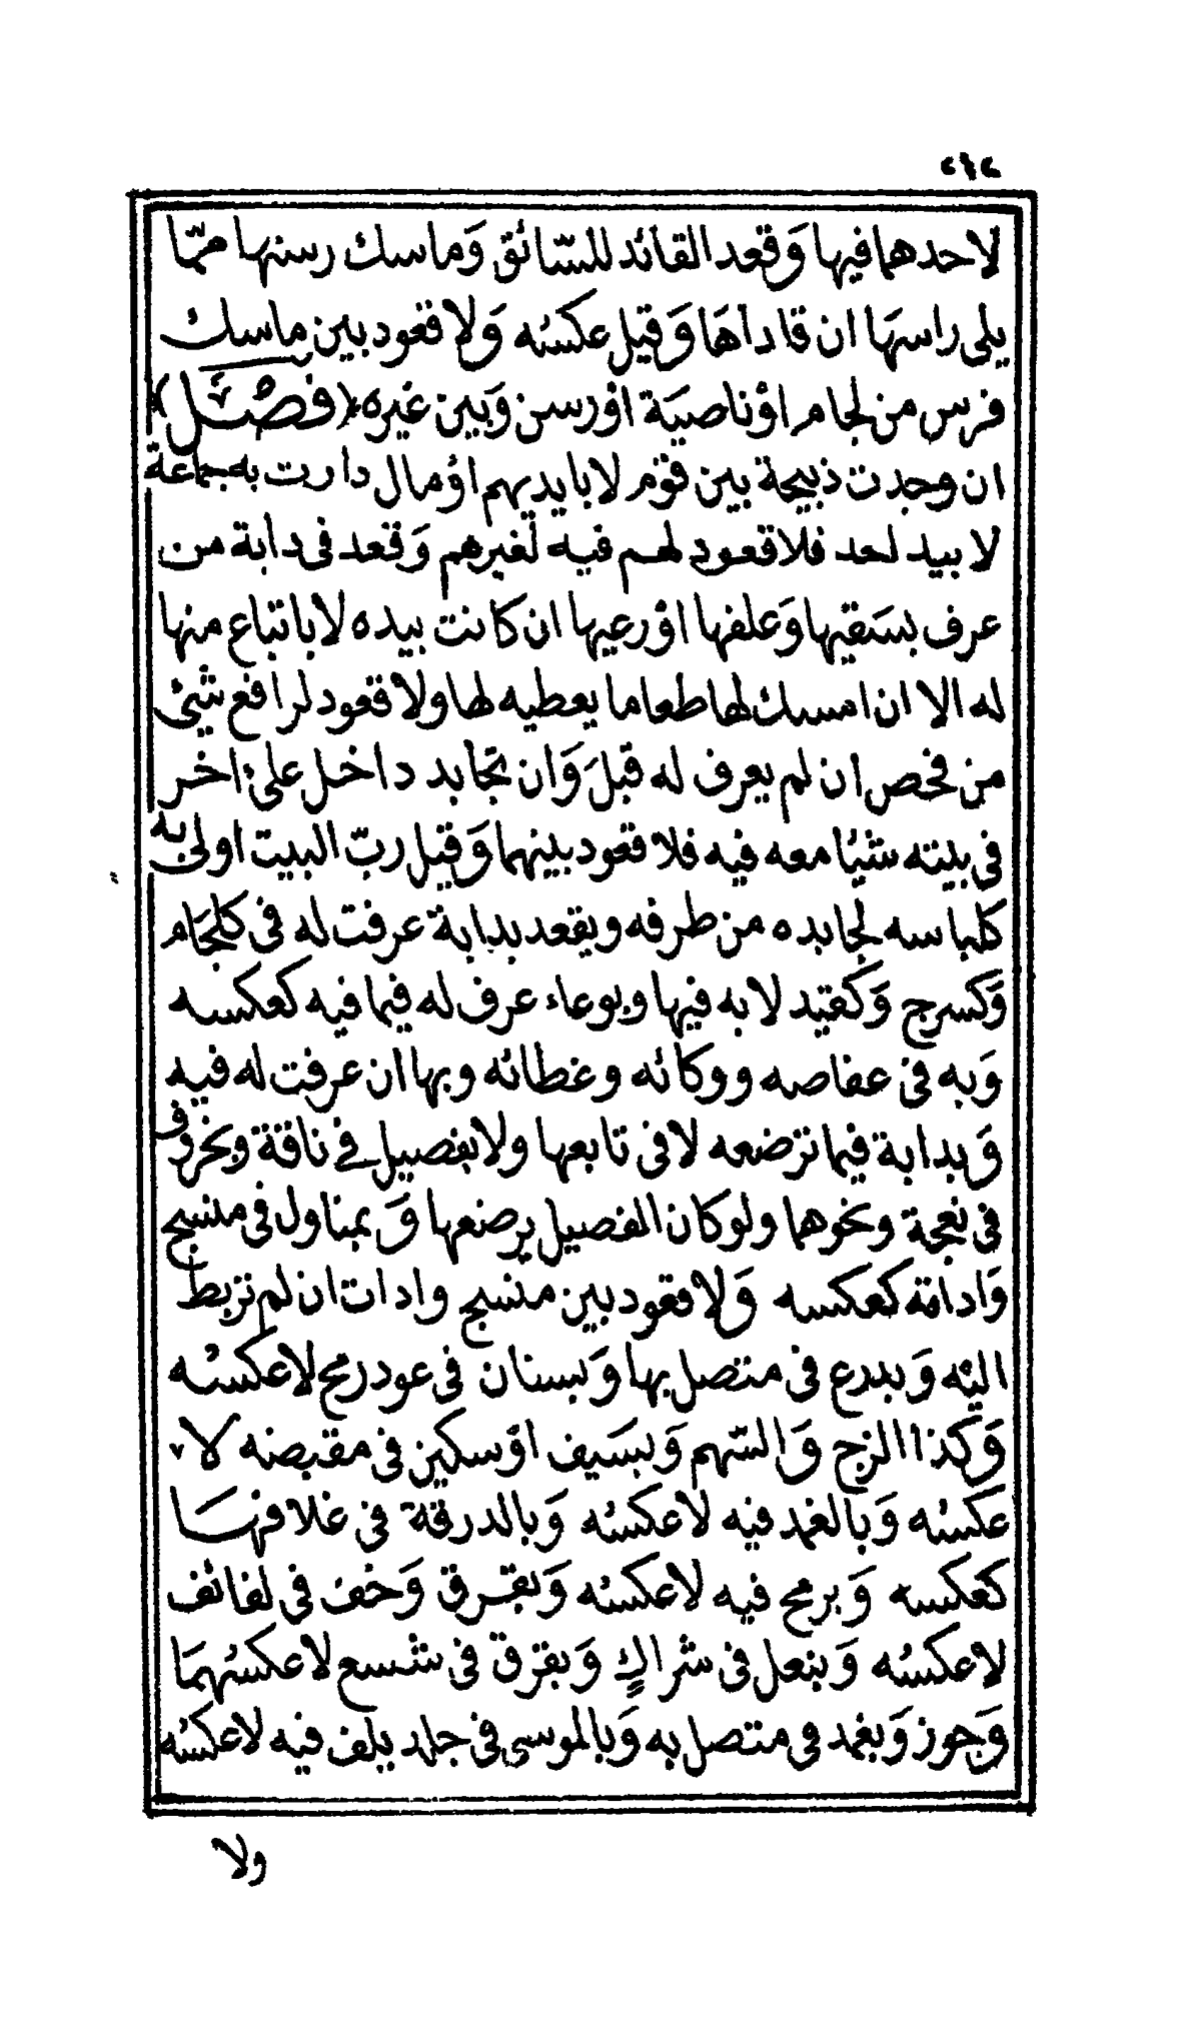 ٢١٢
لاحدهما فيها وَقعد القائد للسّائق وَماسك رسنها ممّا
يلى راسهَا ان قاداهَا وَقيل عكسُه وَلا قعود بين ماسك
فرس من لجام اوْ ناصيَة اوْ رسن وَبين غيره (فصْل)
ان وجدت ذبيحة بين قوْم لا بايديهم اوْ مال دارت به جماعة
لا بيد لحد فلا قعود لهم فيه لغيرهم وَقعد فى دابة من
عرف بسَقيها وَعلفها اوْ رعيها ان كانت بيده لا باتباع منها
له الا ان امسك لها طعاما يعطيه لها ولا قعود لرافع شىْ
من فحص ان لم يعرف له قبلَ وَان تجابد داخل علىْ اخر
فى بيته شيْا معه فيه فلا قعود بينهما وَقيل ربّ البيت اولىْ به
كلباسه لجابده من طرفه ويقعد بدابة عرفت له فى كلجَام
وَكسرج وَكقيد لا به فيها وبوعاء عرف له فيما فيه كعكسه
وَبه فى عفاصه ووكائه وغطائه وبها ان عرفت له فيه
وَبدابة فيما ترضعه لا فى تابعها ولا بفصيل فى ناقة وبخروف
فى نعجة ونحوهما ولو كان الفصيل يرضعها وَ بمناول فى منسج
وَاداته كعكسه وَلا قعود بين منسج وادات ان لم تربط
اليْه وَبدرع فى متصل بها وَبسنان فى عود رمح لا عكسُه
وَكذا الزج وَالسّهم وَبسَيف اوْ سكين فى مقبضه لا
عكسُه وَبالغمد فيه لا عكسُه وَبالدرقة فى غلافهَا
كعكسه وَبرمح فيه لا عكسُه وَبقرق وَخف فى لفائف
لا عكسُه وَبنعل فى شراكٍ وَبقرق فى شسع لا عكسُهمَا
وَجوز وَبغمد فى متصل به وَبالموسى فى جلد يلف فيه لا عكسُه
ولا